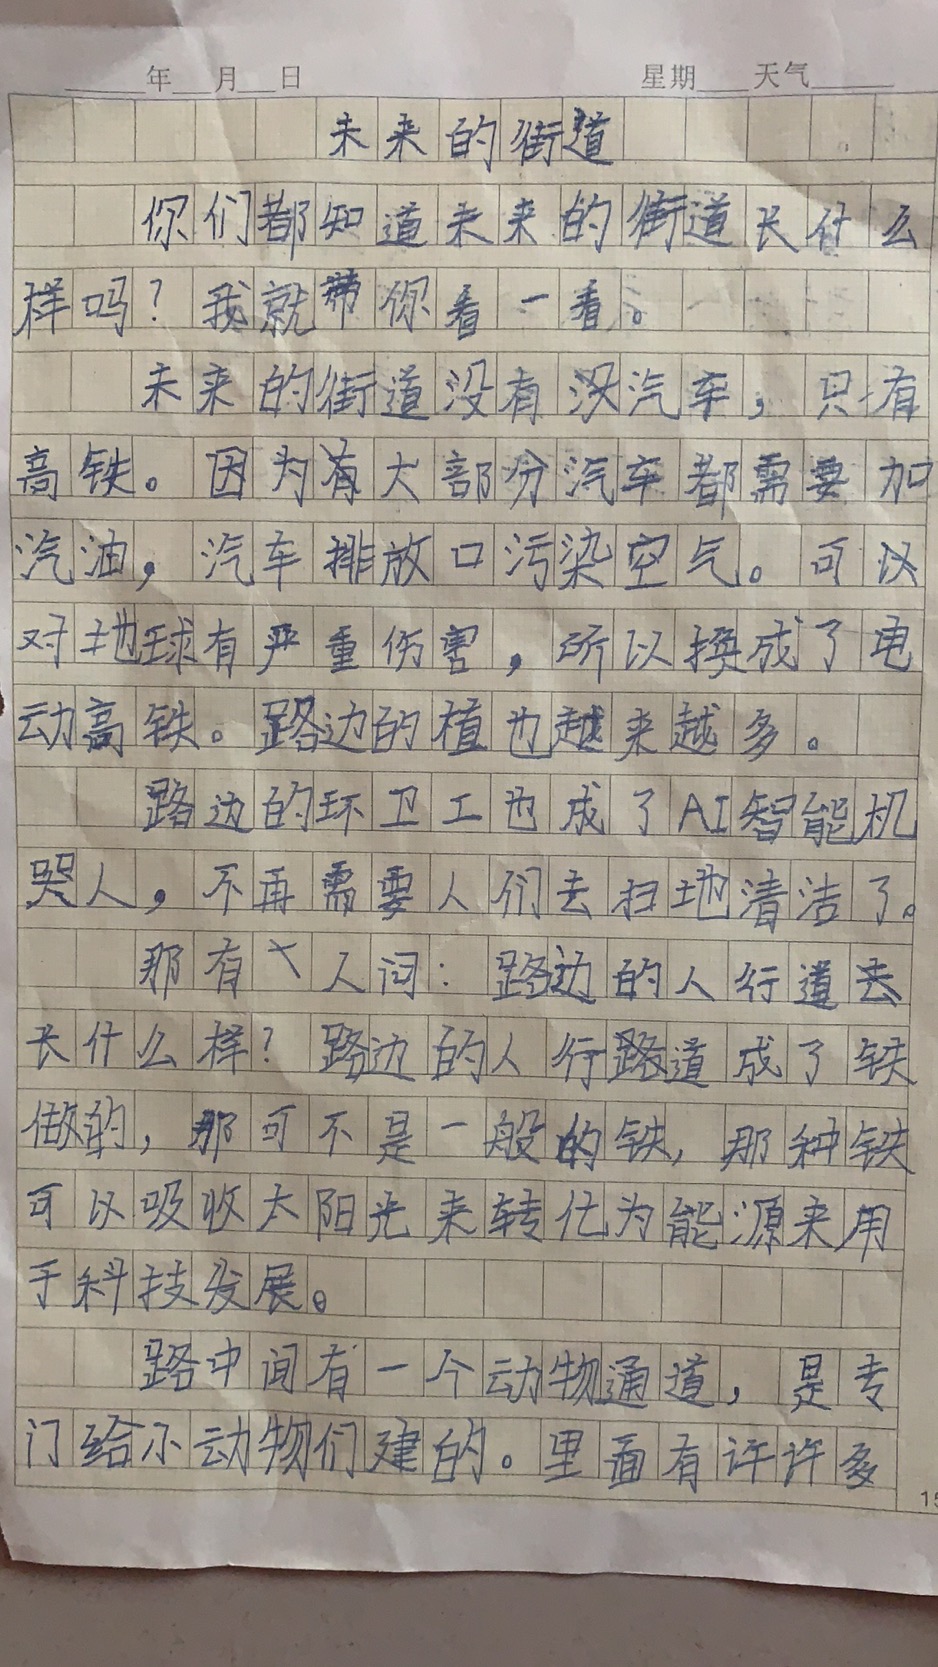 年 月 日 星期 天气
未来的街道
你们都知道未来的街道长什么
样吗？我就带你看一看。
未来的街道没有没汽车，只有
高铁。因为有大部分汽车都需要加
汽油，汽车排放口污染空气。可以
对地球有严重伤害，所以换成了电
动高铁。路边的植也越来越多。
路边的环卫工也成了AI智能机
哭人，不再需要人们去扫地清洁了。
那有人问：路边的人行道去
长什么样？路边的人行路道成了铁
做的，那可不是一般的铁，那种铁
可以吸收太阳光来转化为能源来用
于科技发展。
路中间有一个动物通道，是专
门给小动物们建的。里面有许许多
15